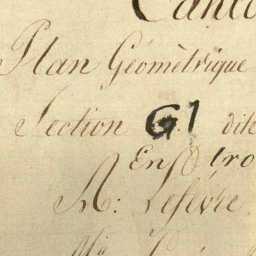 Canto
Plan Géomètrique
Section G1 dite
En
M: Lefèvre